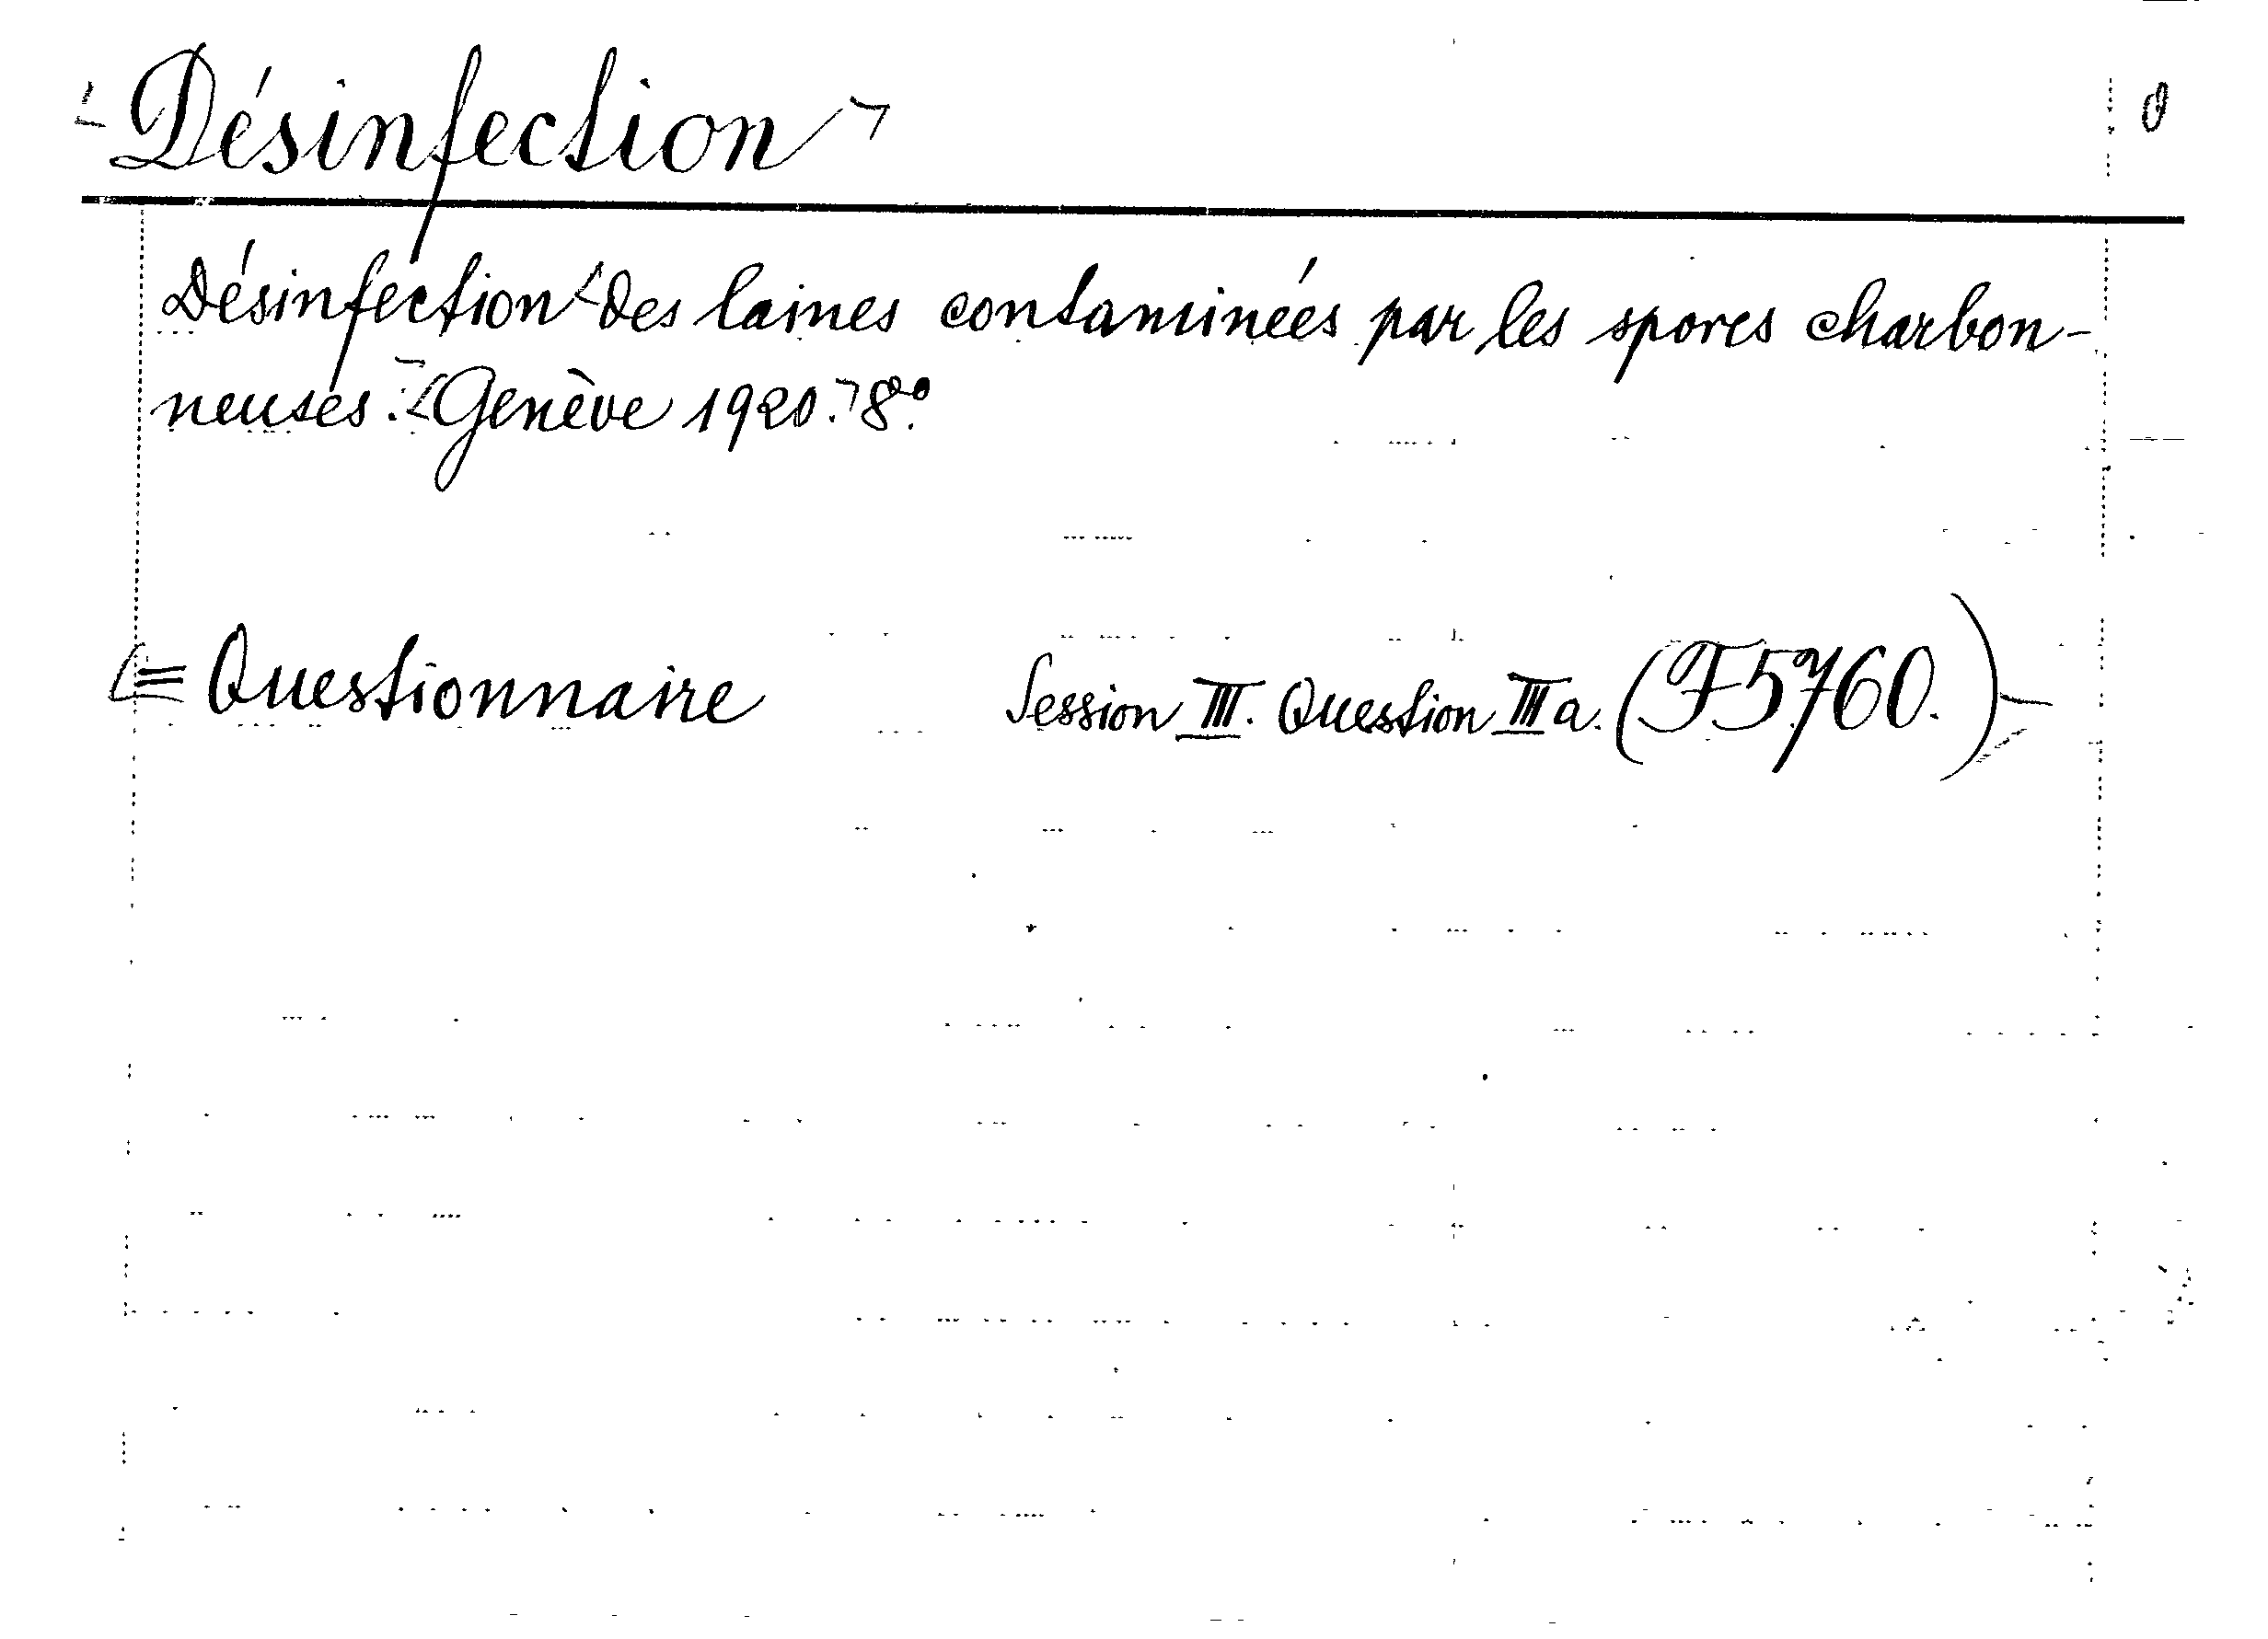 Désinfection
Désinfection des laines contaminées par les spores charbon-
neuses. Genève 1920. 8º.
= Questionnaire Session III. Question IIIa. (F5760.)